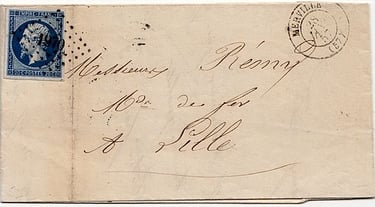 EMPIRE FRANC.
POSTES
MERVILLE
(57)
Messieurs Rémy
Mds de fer
A Lille